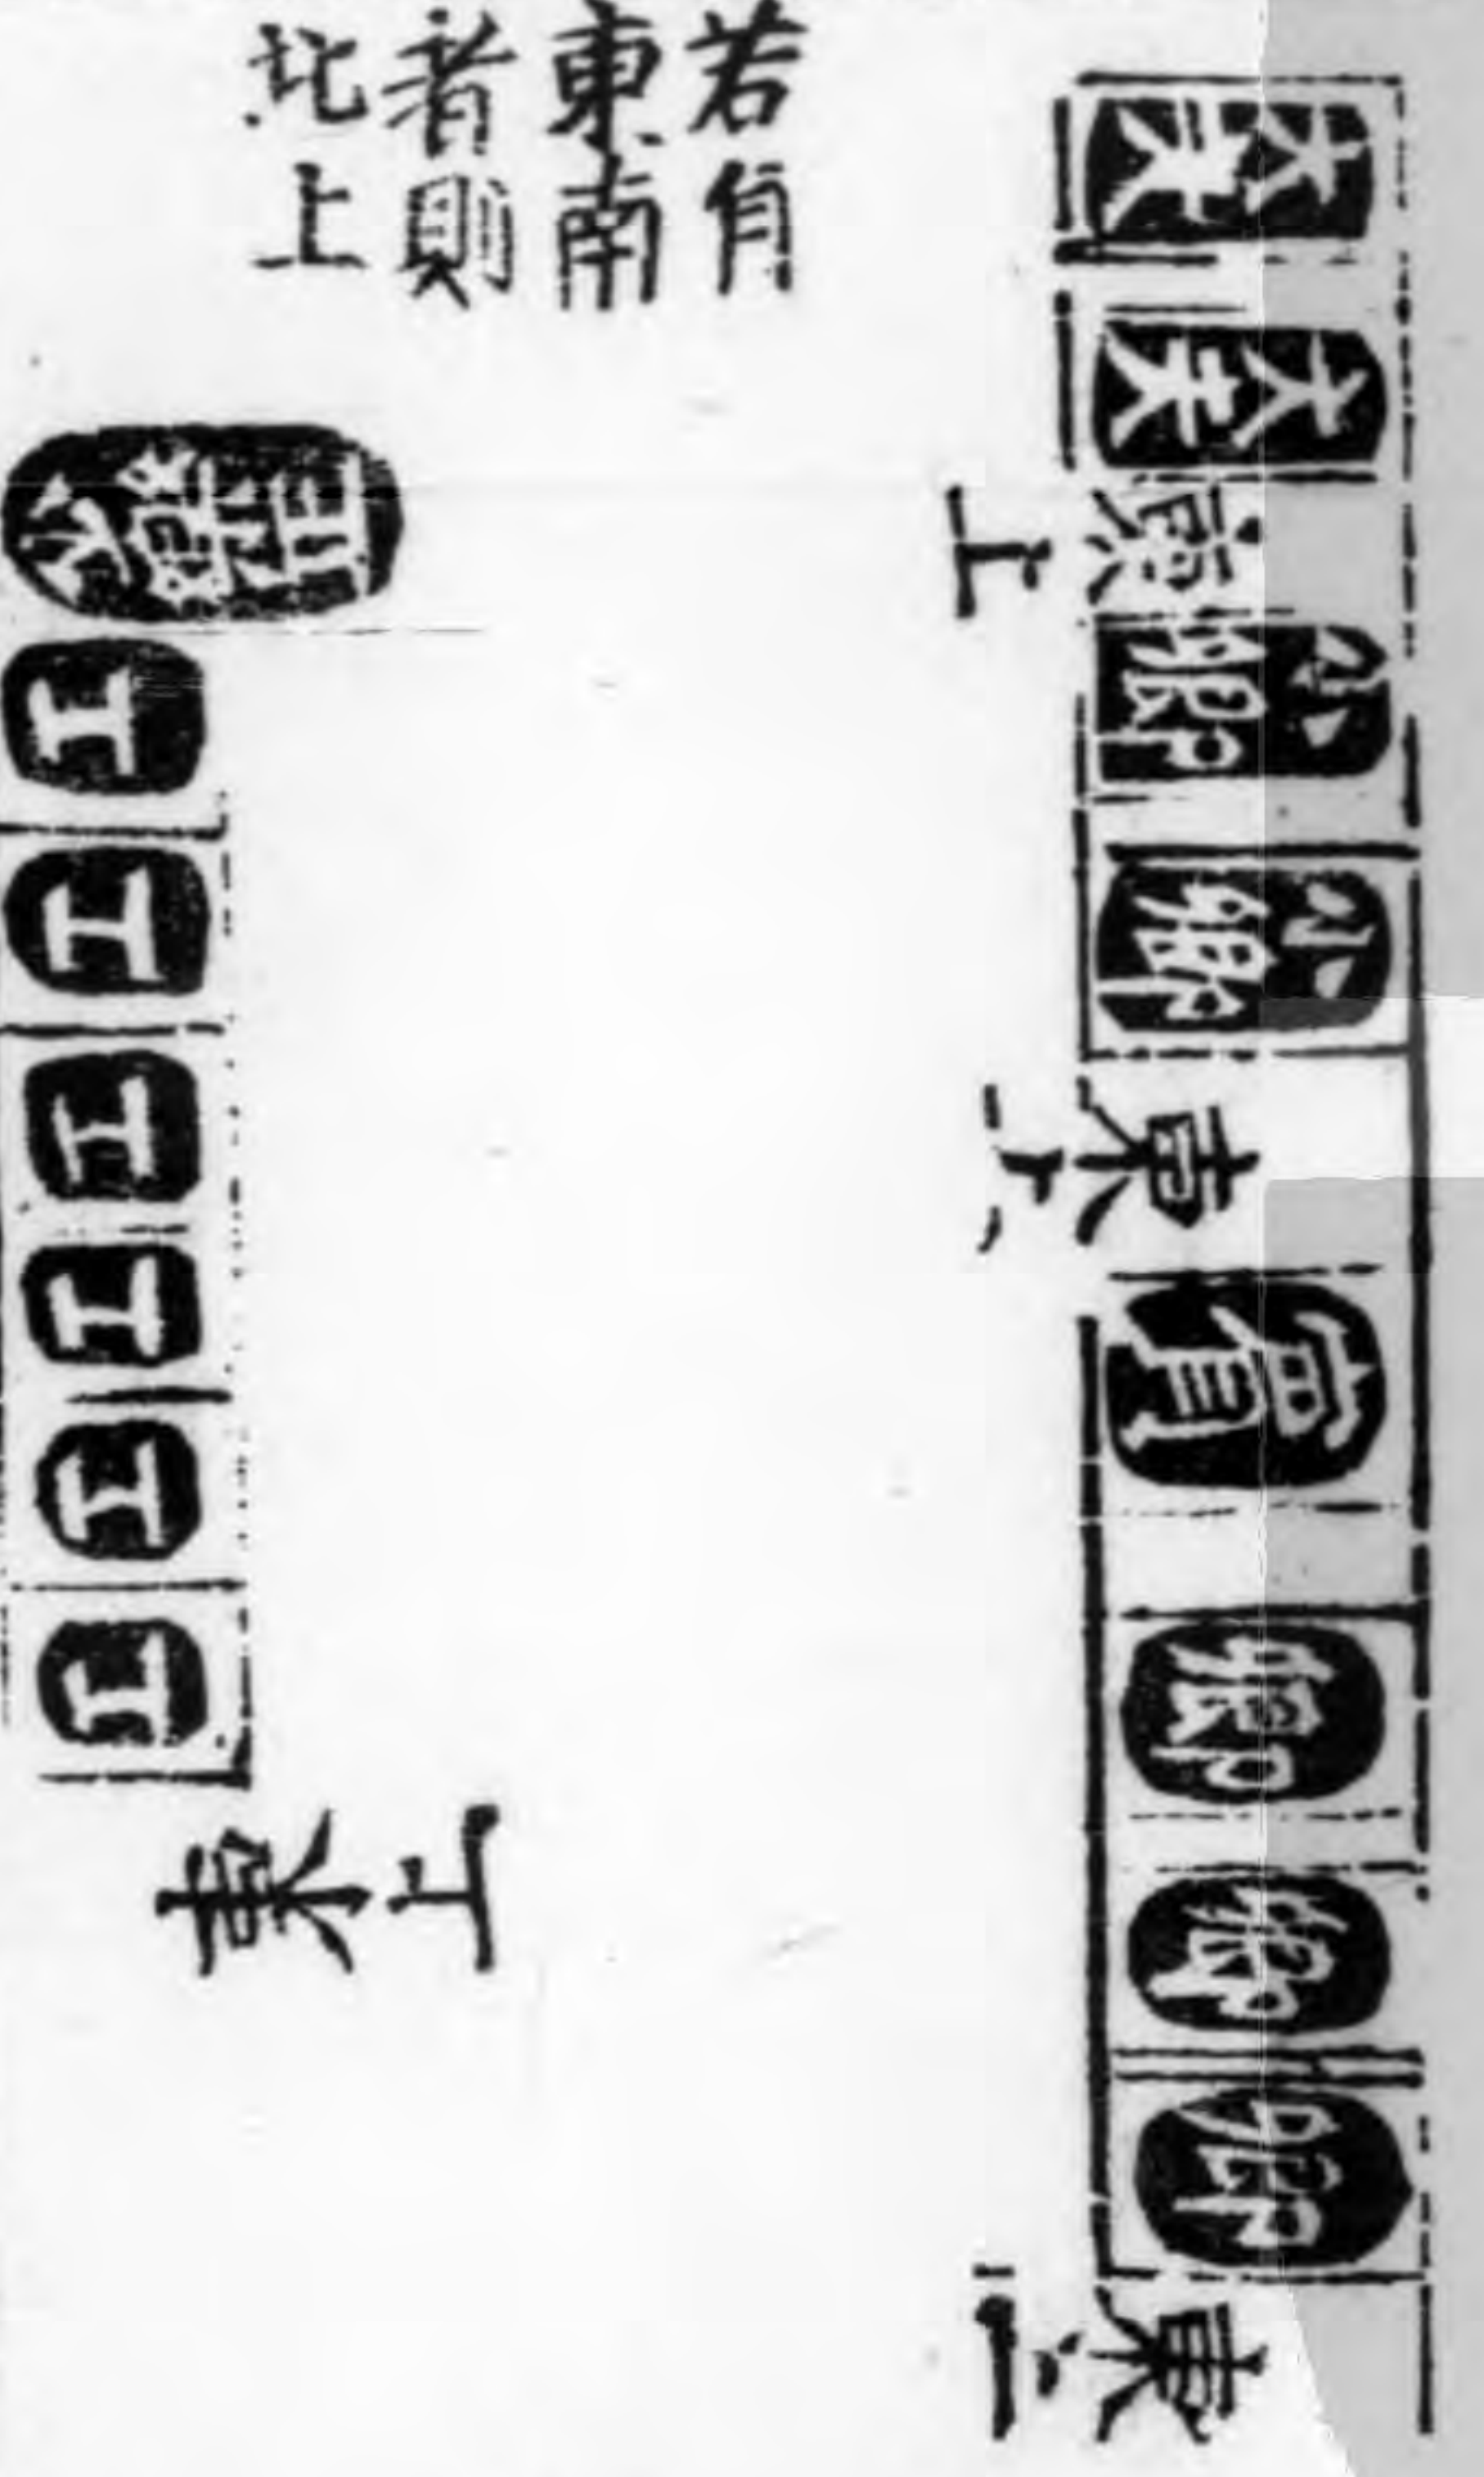 大夫
大夫
東上
小卿
小卿
東上
賓
卿
卿
卿
東上
若有
東南
者則
北上
工
工
工
工
工
工
東上